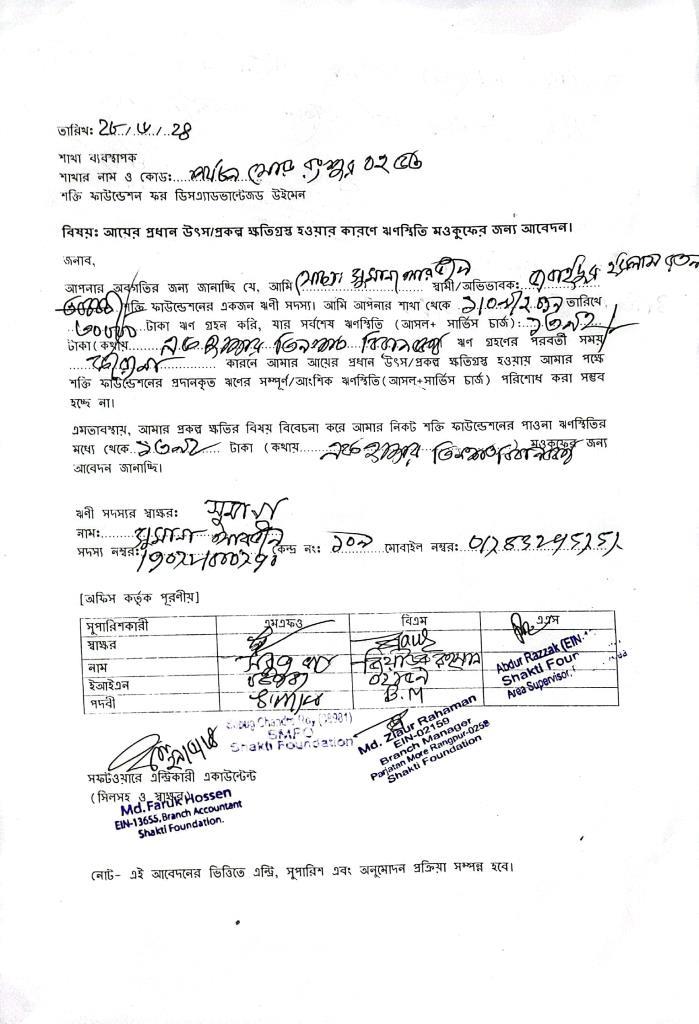 তারিখঃ ২৮/৫/২৪
শাখা ব্যবস্থাপক
শাখার নাম ও কোডঃ পর্যটন মোড় রংপুর ০২৫৮
শক্তি ফাউন্ডেশন ফর ডিসএ্যাডভান্টেজড উইমেন
বিষয়ঃ আয়ের প্রধান উৎস/প্রকল্প ক্ষতিগ্রস্থ হওয়ার কারণে ঋণস্থিতি মওকুফের জন্য আবেদন।
জনাব,
আপনার অবগতির জন্য জানাচ্ছি যে, আমি মোছাঃ সুমানা পারভীন স্বামী/অভিভাবকঃ
শক্তি ফাউন্ডেশনের একজন ঋণী সদস্য। আমি আপনার শাখা থেকে তারিখে
৩০০০০ টাকা ঋণ গ্রহন করি, যার সর্বশেষ ঋণস্থিতি (আসল+ সার্ভিস চার্জ)ঃ ১৩৯২
টাকা (কথায় এক হাজার তিনশত বিরানব্বই ঋণ গ্রহণের পরবর্তী সময়
করোনা কারনে আমার আয়ের প্রধান উৎস/প্রকল্প ক্ষতিগ্রস্থ হওয়ায় আমার পক্ষে
শক্তি ফাউন্ডেশনের প্রদানকৃত ঋণের সম্পূর্ণ/আংশিক ঋণস্থিতি (আসল+সার্ভিস চার্জ) পরিশোধ করা সম্ভব
হচ্ছে না।
এমতাবস্থায়, আমার প্রকল্প ক্ষতির বিষয় বিবেচনা করে আমার নিকট শক্তি ফাউন্ডেশনের পাওনা ঋণস্থিতির
মধ্যে থেকে ১৩৯২ টাকা (কথায় এক হাজার তিনশত বিরানব্বই মওকুফের জন্য
আবেদন জানাচ্ছি।
ঋণী সদস্যের স্বাক্ষরঃ সুমানা
নামঃ সুমানা পারভীন
সদস্য নম্বরঃ কেন্দ্র নং: ১০৯ মোবাইল নম্বরঃ
[অফিস কর্তৃক পূরণীয়]
সুপারিশকারী এমএফও বিএম এএস
স্বাক্ষর
নাম জিয়াউর রহমান Abdur Razzak (EIN-
ইআইএন ০২১৫৯ Shakti Foun
পদবী B.M Area Supervisor,
Chandra Roy
SMFO
Shakti Foundation
Md. Ziaur Rahaman
EIN-02159
Branch Manager
Parjatan More Rangpur-0258
Shakti Foundation
সফটওয়ারে এন্ট্রিকারী একাউন্টেন্ট
(সিলসহ ও স্বাক্ষর)
Md. Faruk Hossen
EIN-13655, Branch Accountant
Shakti Foundation.
নোট- এই আবেদনের ভিত্তিতে এন্ট্রি, সুপারিশ এবং অনুমোদন প্রক্রিয়া সম্পন্ন হবে।